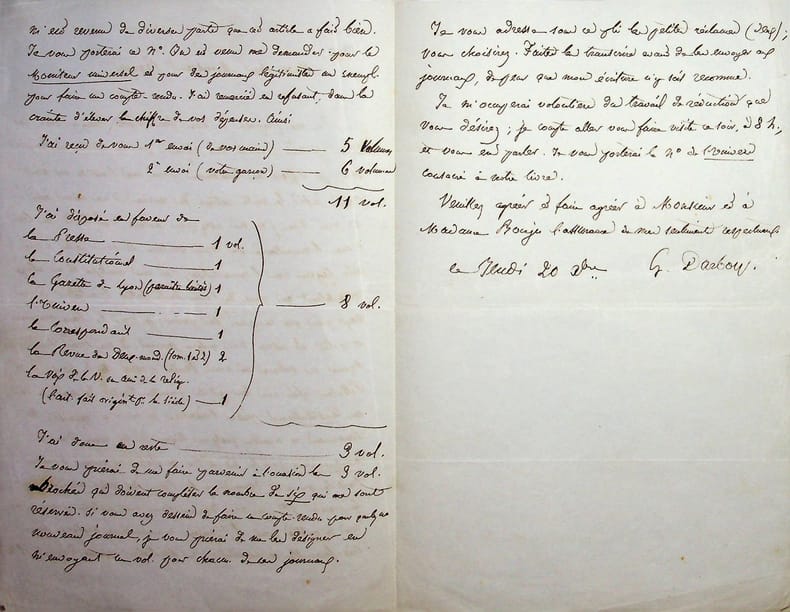 m'est revenu de diverses parts que cet article a fait bien.
Je vous porterai ce n°. On est venu me demander pour le
Moniteur universel et pour des journaux légitimistes un exempl.
pour faire un compte-rendu. J'ai remercié en refusant, dans la
crainte d'élever le chiffre de vos dépenses. Ainsi
J'ai reçu de vous 1er envoi (de vos mains) — 5 volumes
2e envoi (votre garçon) — 6 volumes
11 vol.
J'ai déposé en faveur de
la Presse — 1 vol.
le Constitutionnel — 1
la Gazette de Lyon 1
l'Univers — 1
— 8 vol.
le Correspondant — 1
la Revue des Deux-mond. (tom. 1 et 2) 2
la voix de la V. ou ami de la relig.
— 1
J'ai donc en reste — 3 vol.
Je vous prierai de me faire parvenir à l'occasion les 3 vol.
brochés qui doivent compléter le nombre de six qui me sont
réservés. Si vous avez dessein de faire un compte-rendu par quelque
nouveau journal, je vous prierai de me les désigner en
m'envoyant un vol. pour chacun de ces journaux.
Je vous adresse sous ce pli les petites réclames
vous choisirez. Faites les transcrire avant de les envoyer aux
journaux, de peur que mon écriture n'y soit reconnue.
Je m'occuperai volontiers du travail de que
vous désirez ; je compte aller vous faire visite ce soir, à 8 h.,
et vous en parler. Je vous porterai le n° de l'Univers
consacré à votre livre.
Veuillez agréer et faire agréer à Monsieur et à
Madame l'assurance de mes sentiments respectueux
ce Jeudi 20 Xbre G. Darboy.